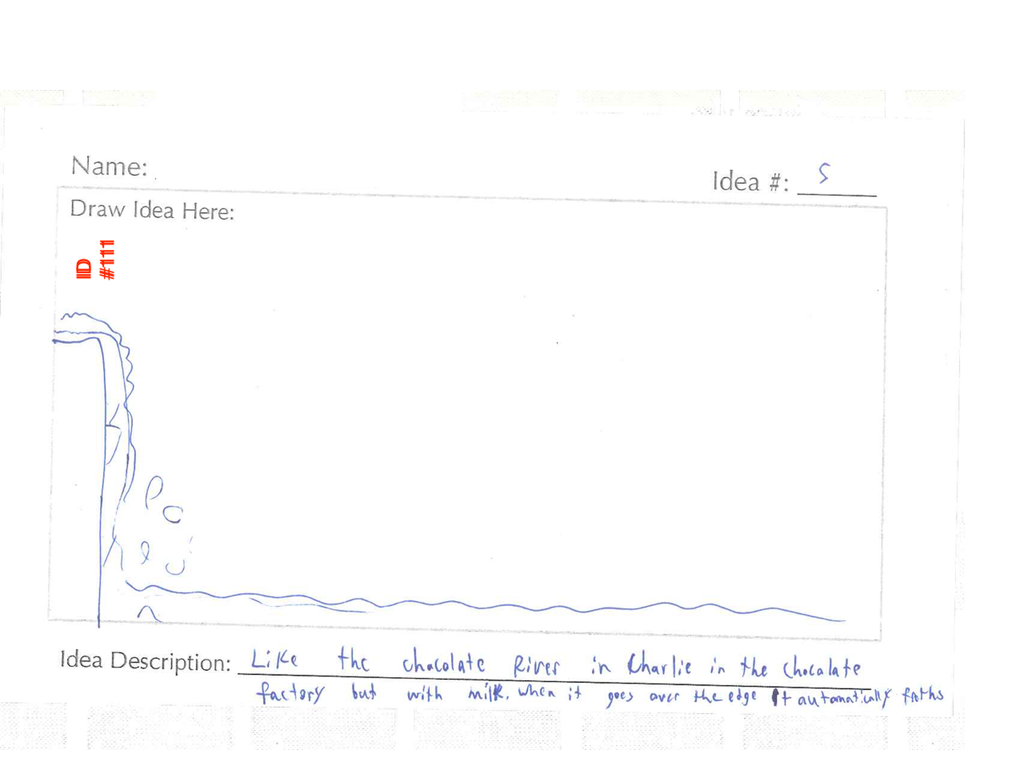 Name:
Idea #: 5
Draw Idea Here:
ID
#111
Idea Description: Like the chocolate River in Charlie in the chocolate
factory but with milk. when it goes over the edge it automatically froths